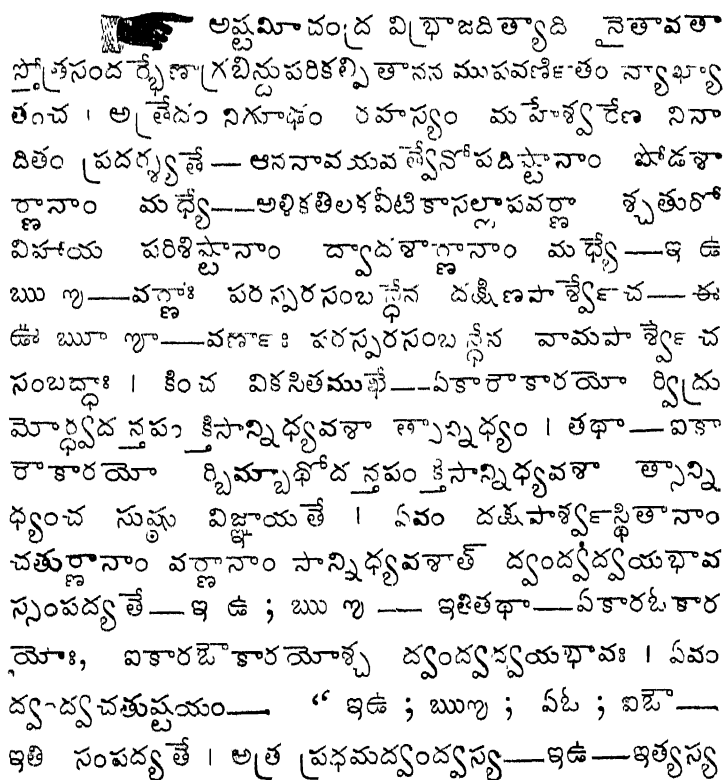 అష్టమీచంద్ర విభ్రాజదిత్యాది నైతావతా
స్తోత్రసందర్భేణాగ్రబిన్దుపరికల్పితానన ముపవర్ణితం వ్యాఖ్యా
తంచ । అత్రేదం నిగూఢం రహస్యం మహేశ్వరేణ నినా
దితం ప్రదర్శ్యతే — ఆననావయవత్వేనోపదిష్టానాం షోడశా
ర్ణానాం మధ్యే — అళికతిలకవీటికాసల్లాపవర్ణా శ్చతురో
విహాయ పరిశిష్టానాం ద్వాదశార్ణానాం మధ్యే — ఇ ఉ
ఋ ఌ — వర్ణాః పరస్పరసంబన్ధేన దక్షిణపార్శ్వేచ — ఈ
ఊ ౠ ౡ — వర్ణాః పరస్పరసంబన్ధేన వామపార్శ్వేచ
సంబద్ధాః । కించ వికసితముఖే — ఏకారౌకారయో ర్విద్రు
మోర్ధ్వదన్తపంక్తిసాన్నిధ్యవశా త్సాన్నిధ్యం । తథా — ఐకా
రాకారయో ర్బిమ్బాథోదన్తపంక్తసాన్నిధ్యవశా త్సాన్ని
ధ్యంచ సుష్ఠు విజ్ఞాయతే । ఏవం దక్షపార్శ్వస్థితానాం
చతుర్ణానాం వర్ణానాం సాన్నిధ్యవశాత్ ద్వంద్వద్వయభావ
స్సంపద్యతే — ఇ ఉ ; ఋ ఌ — ఇతితథా — ఏకారఓకార
యోః, ఐకారఔకారయోశ్చ ద్వంద్వద్వయభావః । ఏవం
ద్వంద్వచతుష్టయం — “ ఇఉ ; ఋఌ ; ఏఓ ; ఐఔ —
ఇతి సంపద్యతే । అత్ర ప్రథమద్వంద్వస్య — ఇఉ — ఇత్యస్య